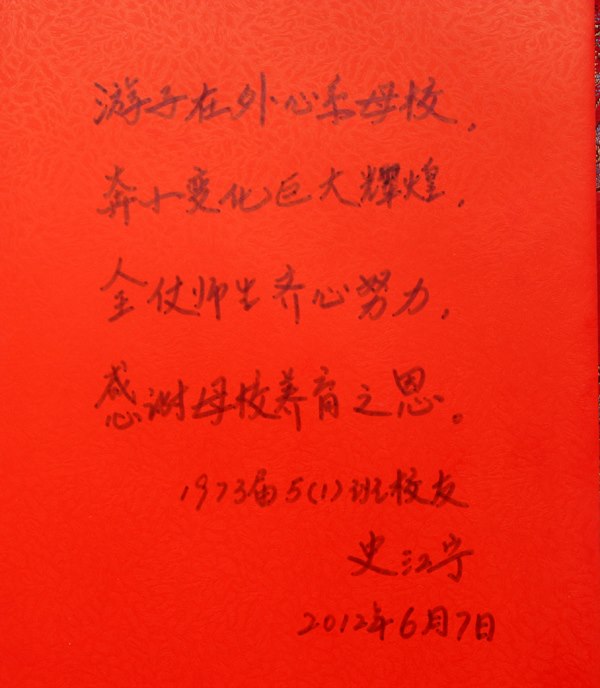 游子在外心系母校，
奔小变化巨大辉煌，
全仗师生齐心努力，
感谢母校养育之恩。
1973届5(1)班校友
史江宁
2012年6月7日